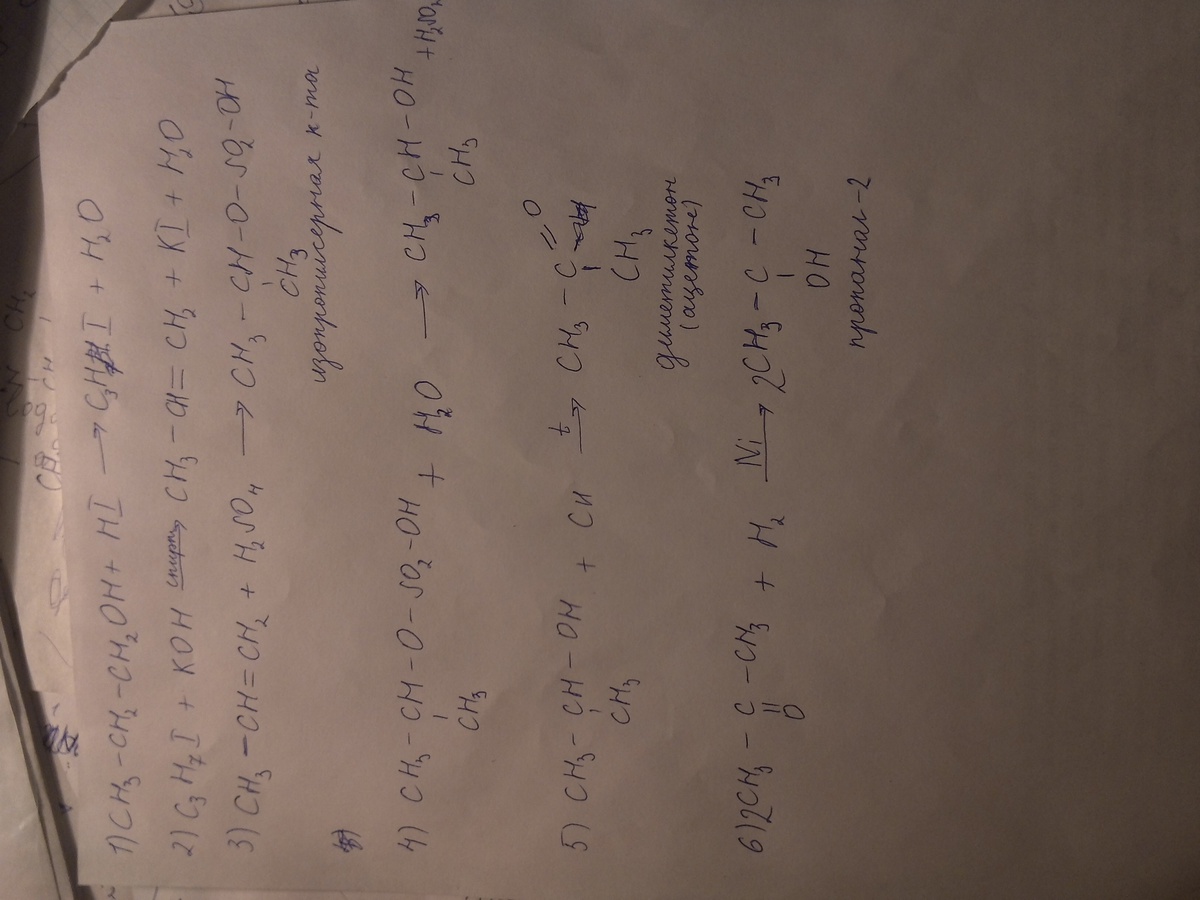 1) CH₃-CH₂-CH₂OH + HI → C₃H₇I + H₂O
2) C₃H₇I + KOH спирт→ CH₃-CH=CH₂ + KI + H₂O
3) CH₃-CH=CH₂ + H₂SO₄ → CH₃-CH-O-SO₂-OH
CH₃
изопропилсерная к-та
4) CH₃-CH-O-SO₂-OH + H₂O → CH₃-CH-OH + H₂SO₄
CH₃ CH₃
5) CH₃-CH-OH + Cu t→ CH₃-C=O
CH₃ CH₃
диметилкетон
(ацетоне)
6) 2CH₃-C-CH₃ + H₂ Ni→ 2CH₃-C-CH₃
O OH
пропанал-2